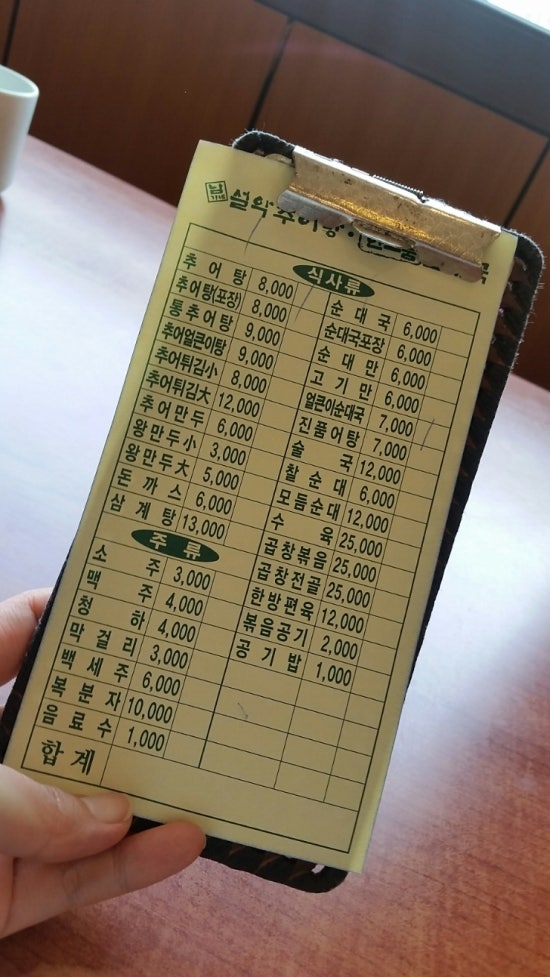 설악추어탕·
식사류
추어탕 8,000
추어탕(포장) 8,000
통추어탕 9,000
추어얼큰이탕 9,000
추어튀김小 8,000
추어튀김大 12,000
추어만두 6,000
왕만두小 3,000
왕만두大 5,000
돈까스 6,000
삼계탕 13,000
주류
소주 3,000
맥주 4,000
청하 4,000
막걸리 3,000
백세주 6,000
복분자 10,000
음료수 1,000
합계
순대국 6,000
순대국포장 6,000
순대만 6,000
고기만 6,000
얼큰이순대국 7,000
진품어탕 7,000
술국 12,000
찰순대 6,000
모듬순대 12,000
수육 25,000
곱창볶음 25,000
곱창전골 25,000
한방편육 12,000
볶음공기 2,000
공기밥 1,000